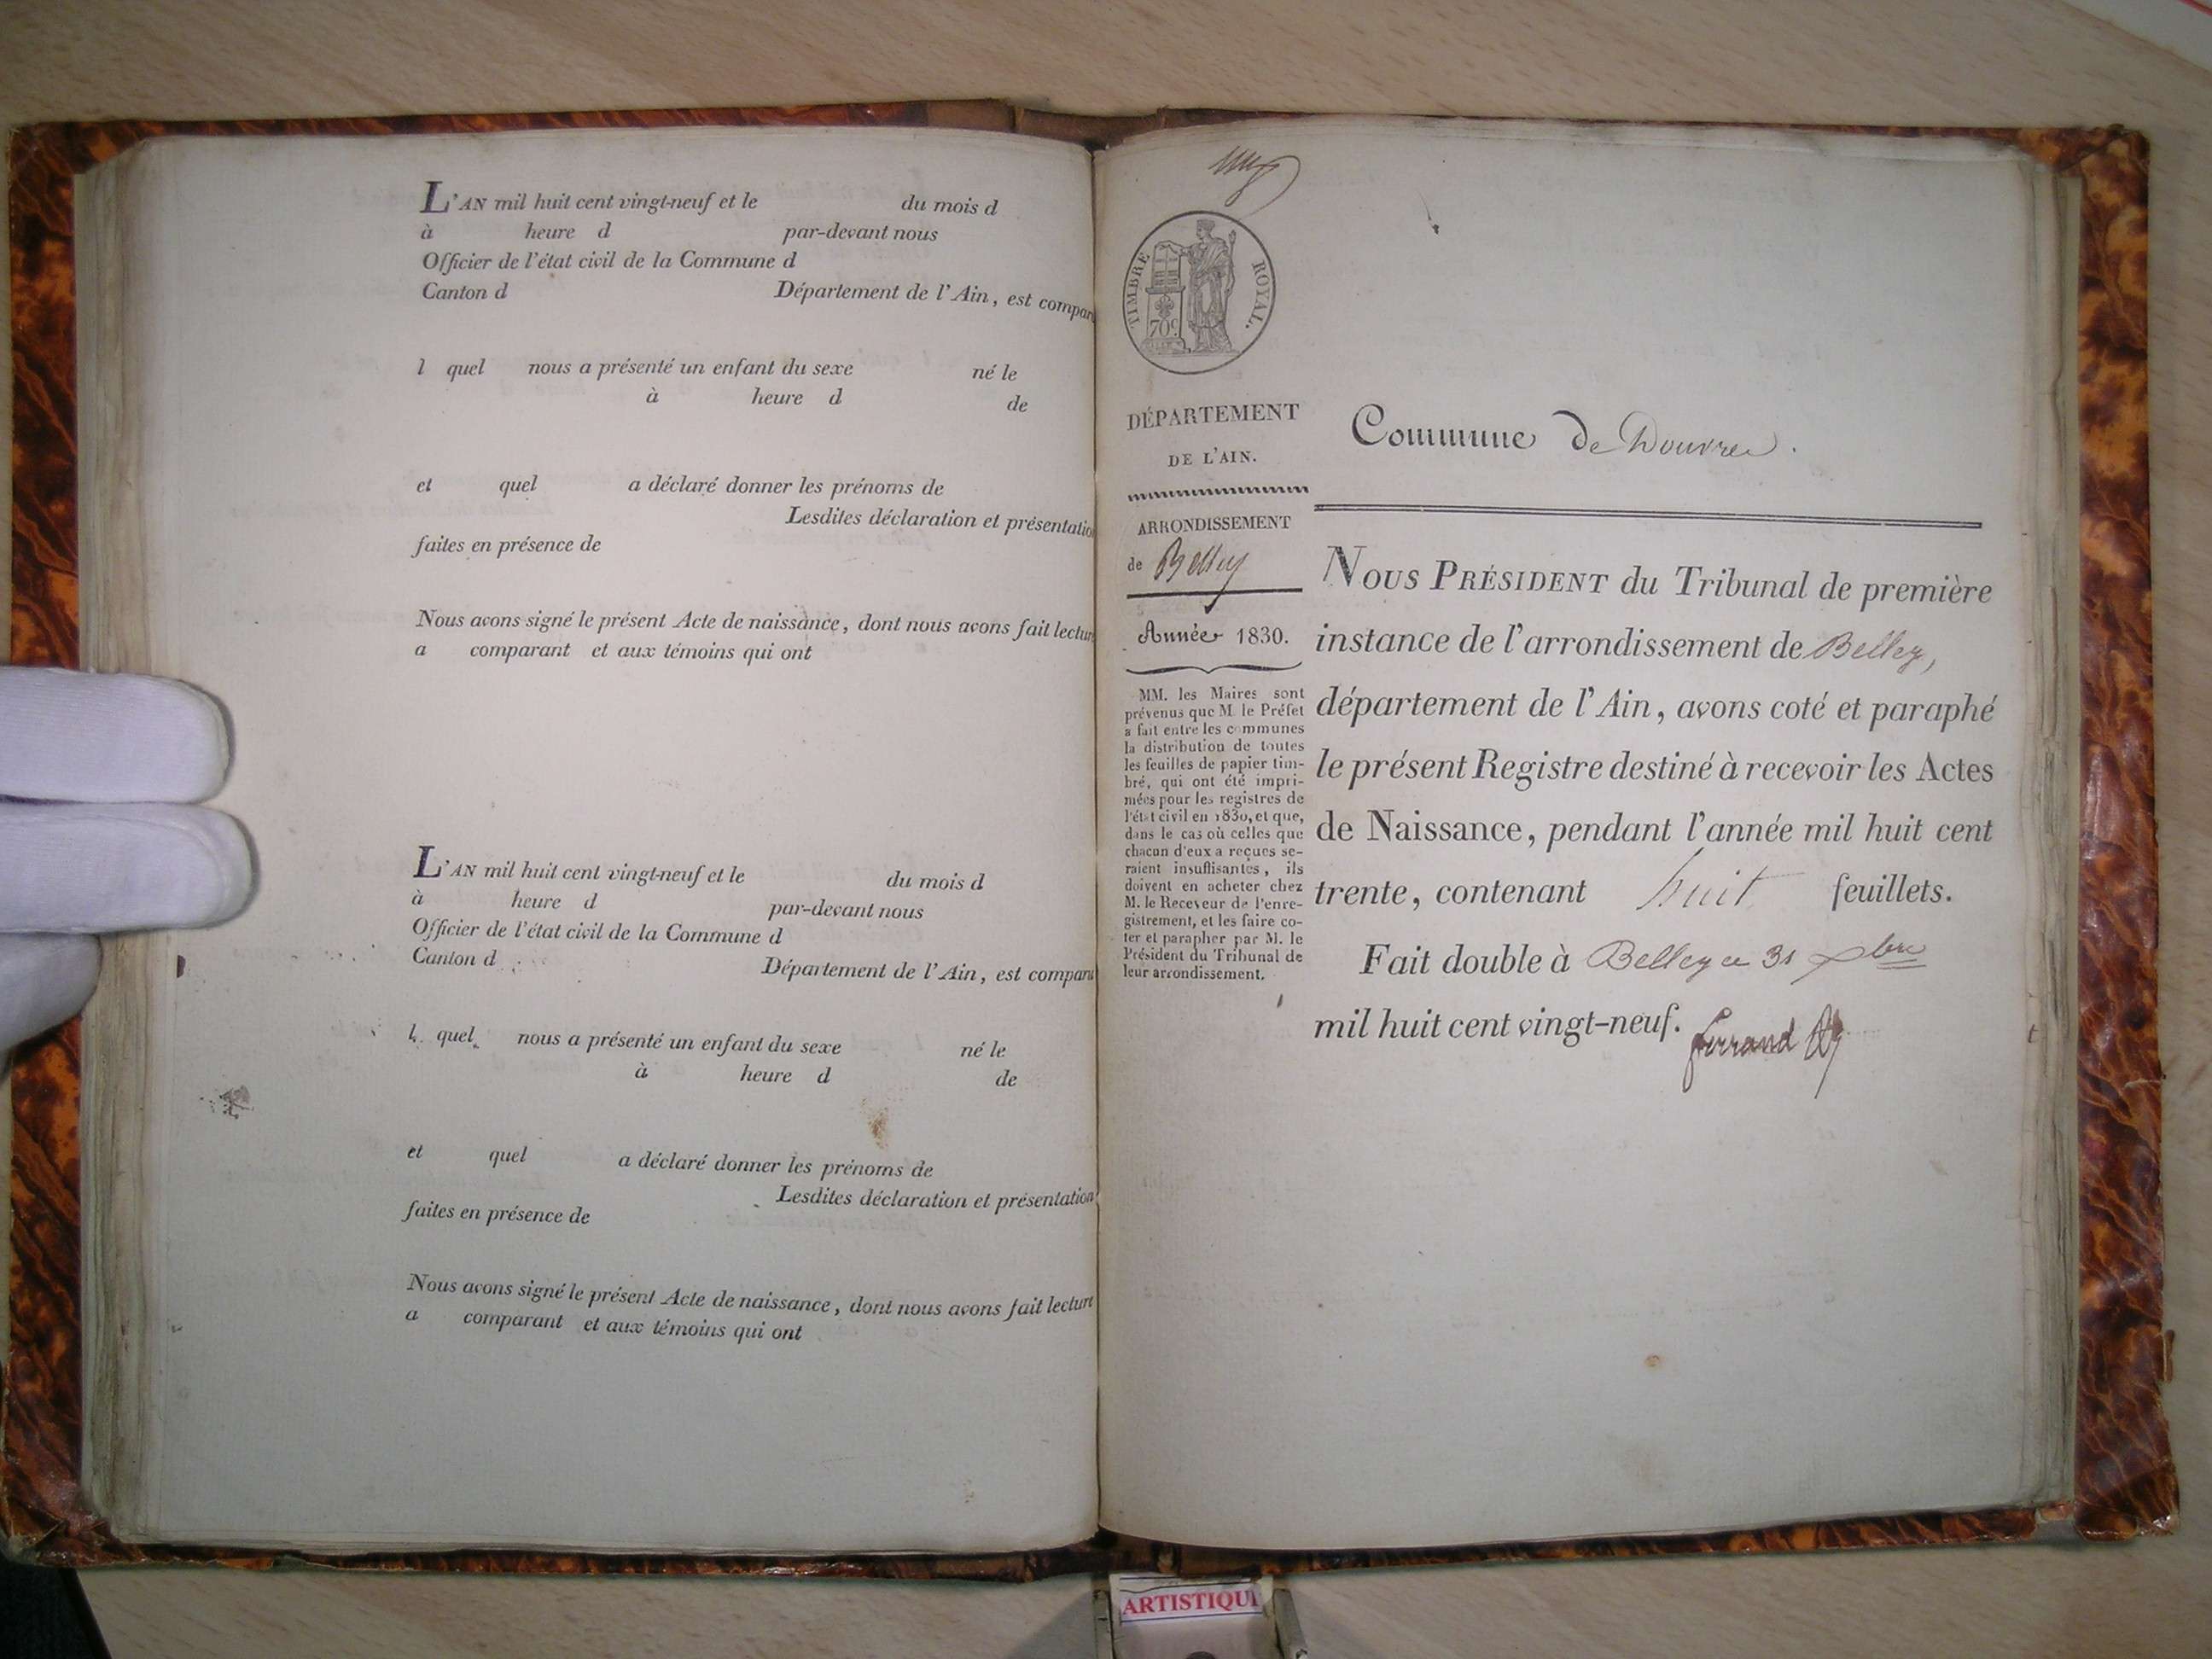 L'AN mil huit cent vingt-neuf et le du mois d
à heure d par-devant nous
Officier de l'état civil de la Commune d
Canton d Département de l'Ain, est compar
l quel nous a présenté un enfant du sexe né le
à heure d de
et quel a déclaré donner les prénoms de
Lesdites déclaration et présentation
faites en présence de
Nous avons signé le présent Acte de naissance, dont nous avons fait lectur
a comparant et aux témoins qui ont
L'AN mil huit cent vingt-neuf et le du mois d
à heure d par-devant nous
Officier de l'état civil de la Commune d
Canton d Département de l'Ain, est compar
l quel nous a présenté un enfant du sexe né le
à heure d de
et quel a déclaré donner les prénoms de
Lesdites déclaration et présentation
faites en présence de
Nous avons signé le présent Acte de naissance, dont nous avons fait lecture
a comparant et aux témoins qui ont
TIMBRE ROYAL.
70c
DÉPARTEMENT
DE L'AIN.
ARRONDISSEMENT
de Belley
Année 1830.
MM. les Maires sont
prévenus que M. le Préfet
a fait entre les communes
la distribution de toutes
les feuilles de papier tim-
bré, qui ont été impri-
mées pour les registres de
l'état civil en 1830, et que,
dans le cas où celles que
chacun d'eux a reçues se-
raient insuffisantes, ils
doivent en acheter chez
M. le Receveur de l'enre-
gistrement, et les faire co-
ter et parapher par M. le
Président du Tribunal de
leur arrondissement.
Commune de Douvres.
NOUS PRÉSIDENT du Tribunal de première
instance de l'arrondissement de Belley,
département de l'Ain, avons coté et paraphé
le présent Registre destiné à recevoir les Actes
de Naissance, pendant l'année mil huit cent
trente, contenant huit feuillets.
Fait double à Belley ce 31 xbre
mil huit cent vingt-neuf.
ferrand
ARTISTIQU